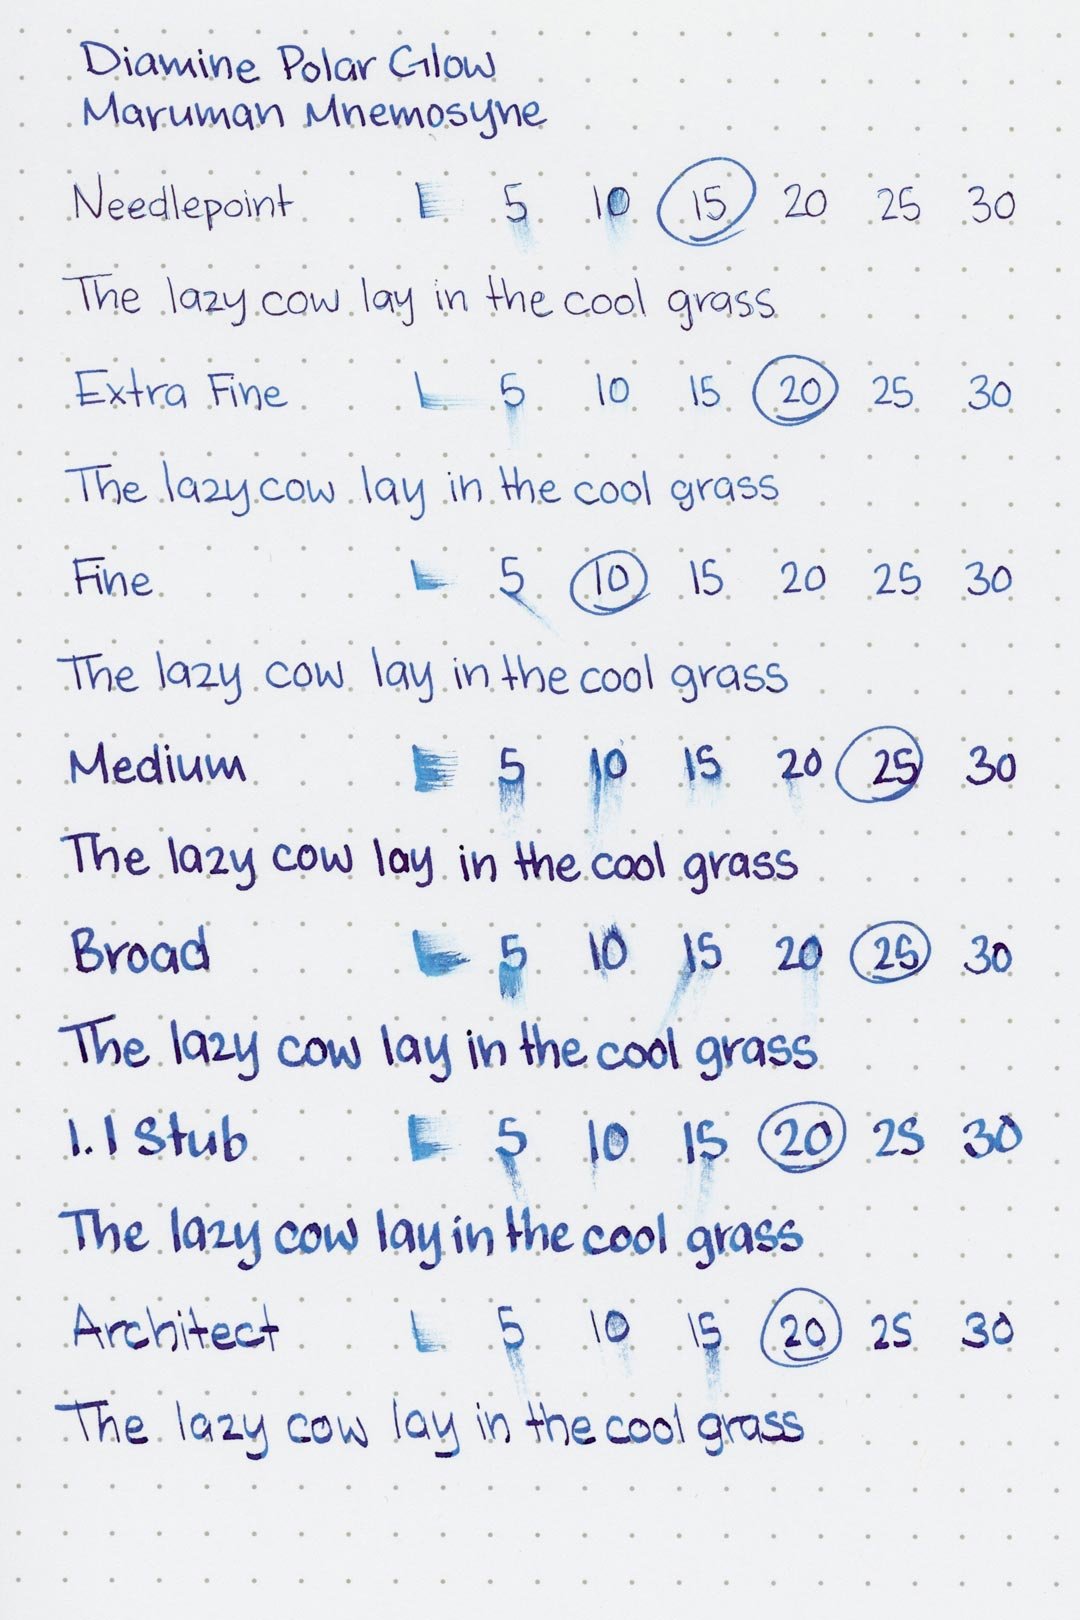 Diamine Polar Glow
Maruman Mnemosyne
Needlepoint L 5 10 15 20 25 30
The lazy cow lay in the cool grass
Extra Fine L 5 10 15 20 25 30
The lazy cow lay in the cool grass
Fine L 5 10 15 20 25 30
The lazy cow lay in the cool grass
Medium L 5 10 15 20 25 30
The lazy cow lay in the cool grass
Broad L 5 10 15 20 25 30
The lazy cow lay in the cool grass
1.1 Stub L 5 10 15 20 25 30
The lazy cow lay in the cool grass
Architect L 5 10 15 20 25 30
The lazy cow lay in the cool grass